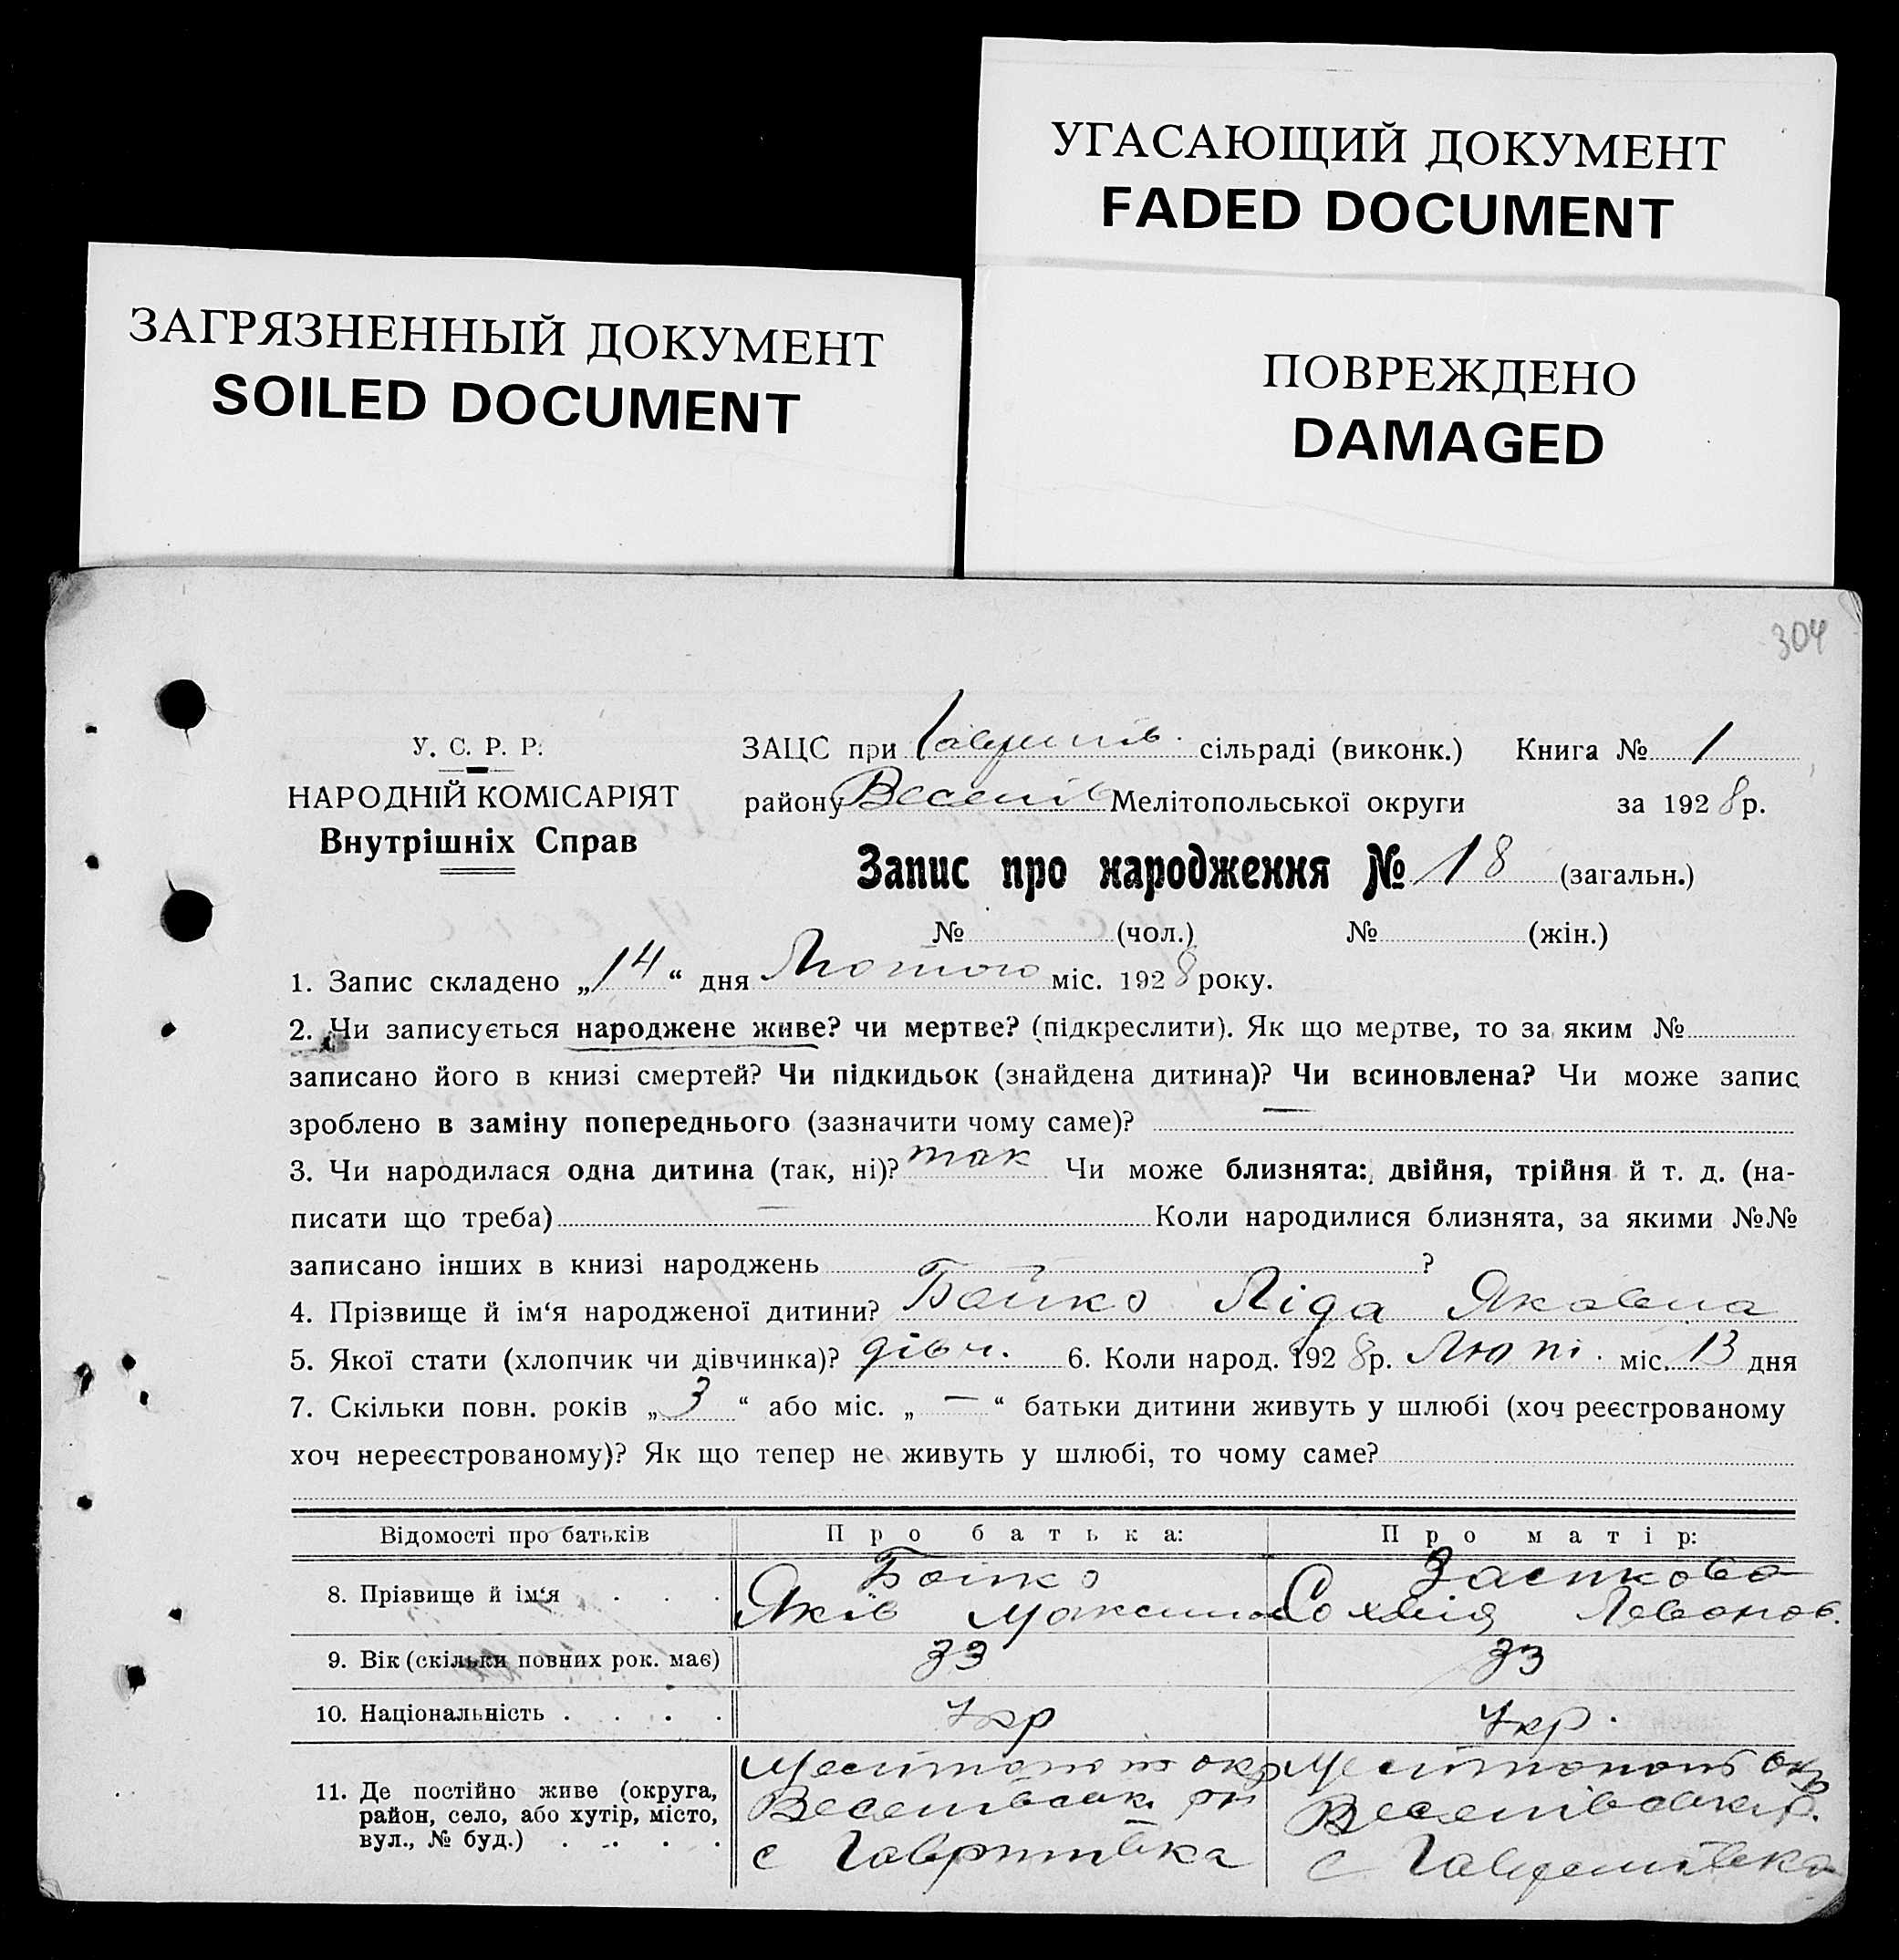 УГАСАЮЩИЙ ДОКУМЕНТ
FADED DOCUMENT
ЗАГРЯЗНЕННЫЙ ДОКУМЕНТ
SOILED DOCUMENT
ПОВРЕЖДЕНО
DAMAGED
304
У. С. Р. Р.
НАРОДНІЙ КОМІСАРІЯТ
Внутрішніх Справ
ЗАЦС при сільраді (виконк.) Книга № 1
району Веселів Мелітопольської округи за 1928 р.
Запис про народження № 18 (загальн.)
№ (чол.) № (жін.)
1. Запис складено „14“ дня Лютого міс. 1928 року.
2. Чи записується народжене живе? чи мертве? (підкреслити). Як що мертве, то за яким №
записано його в книзі смертей? Чи підкидьок (знайдена дитина)? Чи всиновлена? Чи може запис
зроблено в заміну попереднього (зазначити чому саме)? —
3. Чи народилася одна дитина (так, ні)? так Чи може близнята: двійня, трійня й т. д. (на-
писати що треба) — Коли народилися близнята, за якими №№
записано інших в книзі народжень ?
4. Прізвище й ім‘я народженої дитини? Бойко Ліда Яковлна
5. Якої стати (хлопчик чи дівчинка)? дівч. 6. Коли народ. 1928 р. Люті. міс. 13 дня
7. Скільки повн. років „3“ або міс. „—“ батьки дитини живуть у шлюбі (хоч реєстрованому
хоч нереєстрованому)? Як що тепер не живуть у шлюбі, то чому саме?
Відомості про батьків Про батька: Про матір:
8. Прізвище й ім‘я . . . Бойко
Яків Максимов
9. Вік (скільки повних рок. має) 33 33
10. Національність . . . . Укр Укр.
11. Де постійно живе (округа,
район, село, або хутір, місто,
вул., № буд.) . . . .
Мелітопольс окр
Веселівськ рн
с Гаврилівка
Мелітопольс окр
Веселівськ р.
с Гаврилівка